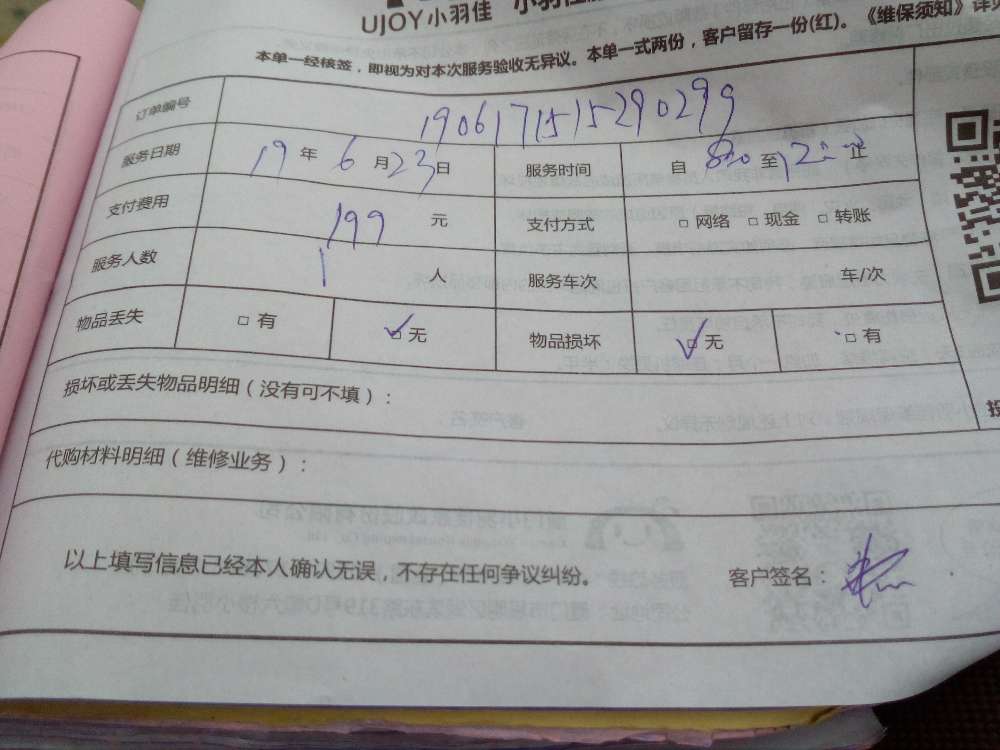 UJOY小羽佳 小羽佳
本单一经核签，即视为对本次服务验收无异议。本单一式两份，客户留存一份(红)。《维保须知》详见
订单编号 1906171515290299
服务日期 19 年 6 月 23 日 服务时间 自 8:30 至 12:00 止
支付费用 199 元 支付方式 □ 网络 □ 现金 □ 转账
服务人数 1 人 服务车次 车/次
物品丢失 □ 有 ✓□ 无 物品损坏 ✓□ 无 □ 有
损坏或丢失物品明细（没有可不填）：
代购材料明细（维修业务）：
以上填写信息已经本人确认无误，不存在任何争议纠纷。 客户签名：